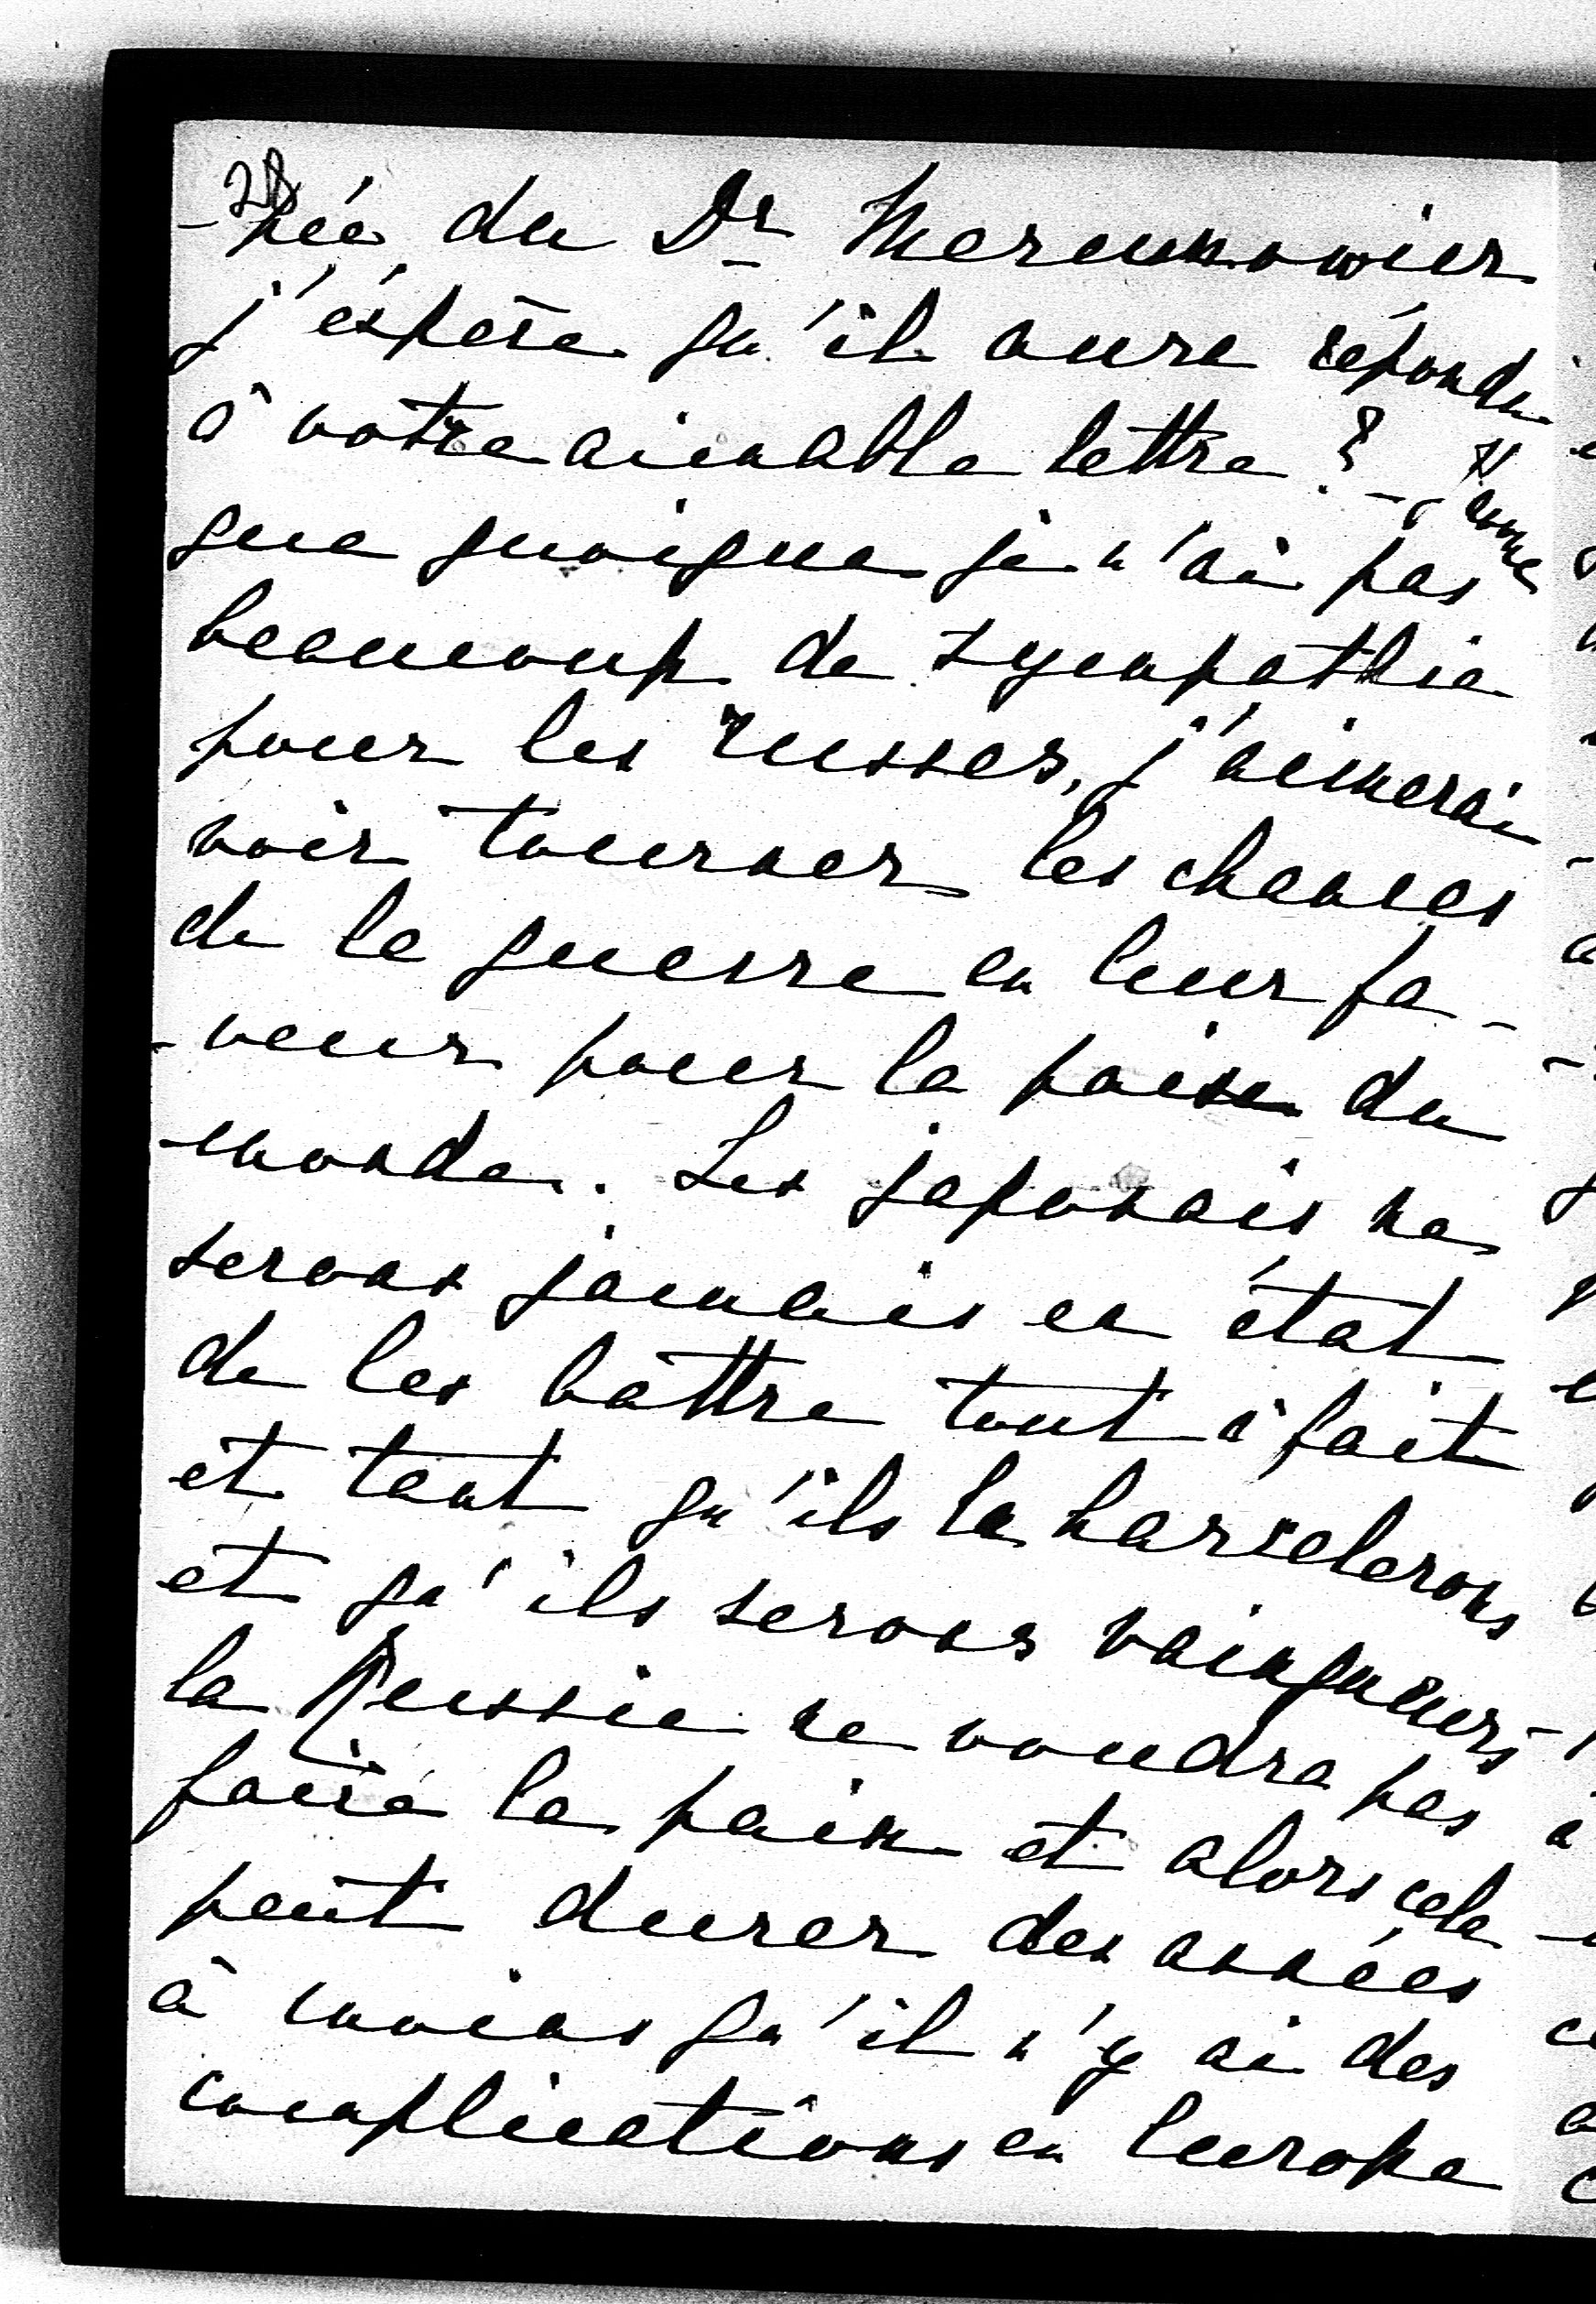 28
-née du Dr Merunowier
j'éspère qu'il aura répondu
à votre aimable lettre ? -
que quoique je n'ai pas
beaucoup de sympathie
pour les russes, j'aimerai
voir tourner les chances
de la guerre en leur fa-
-veur pour la paix du
monde. Les japonais ne
serons jamais en état
de les battre tout à fait
et tant qu'ils la harcelerons
et qu'ils serons vainqueurs
la Russie ne voudra pas
faire la paix et alors cela
peut durer des années
à moins qu'il n'y ai des
complications en Europe